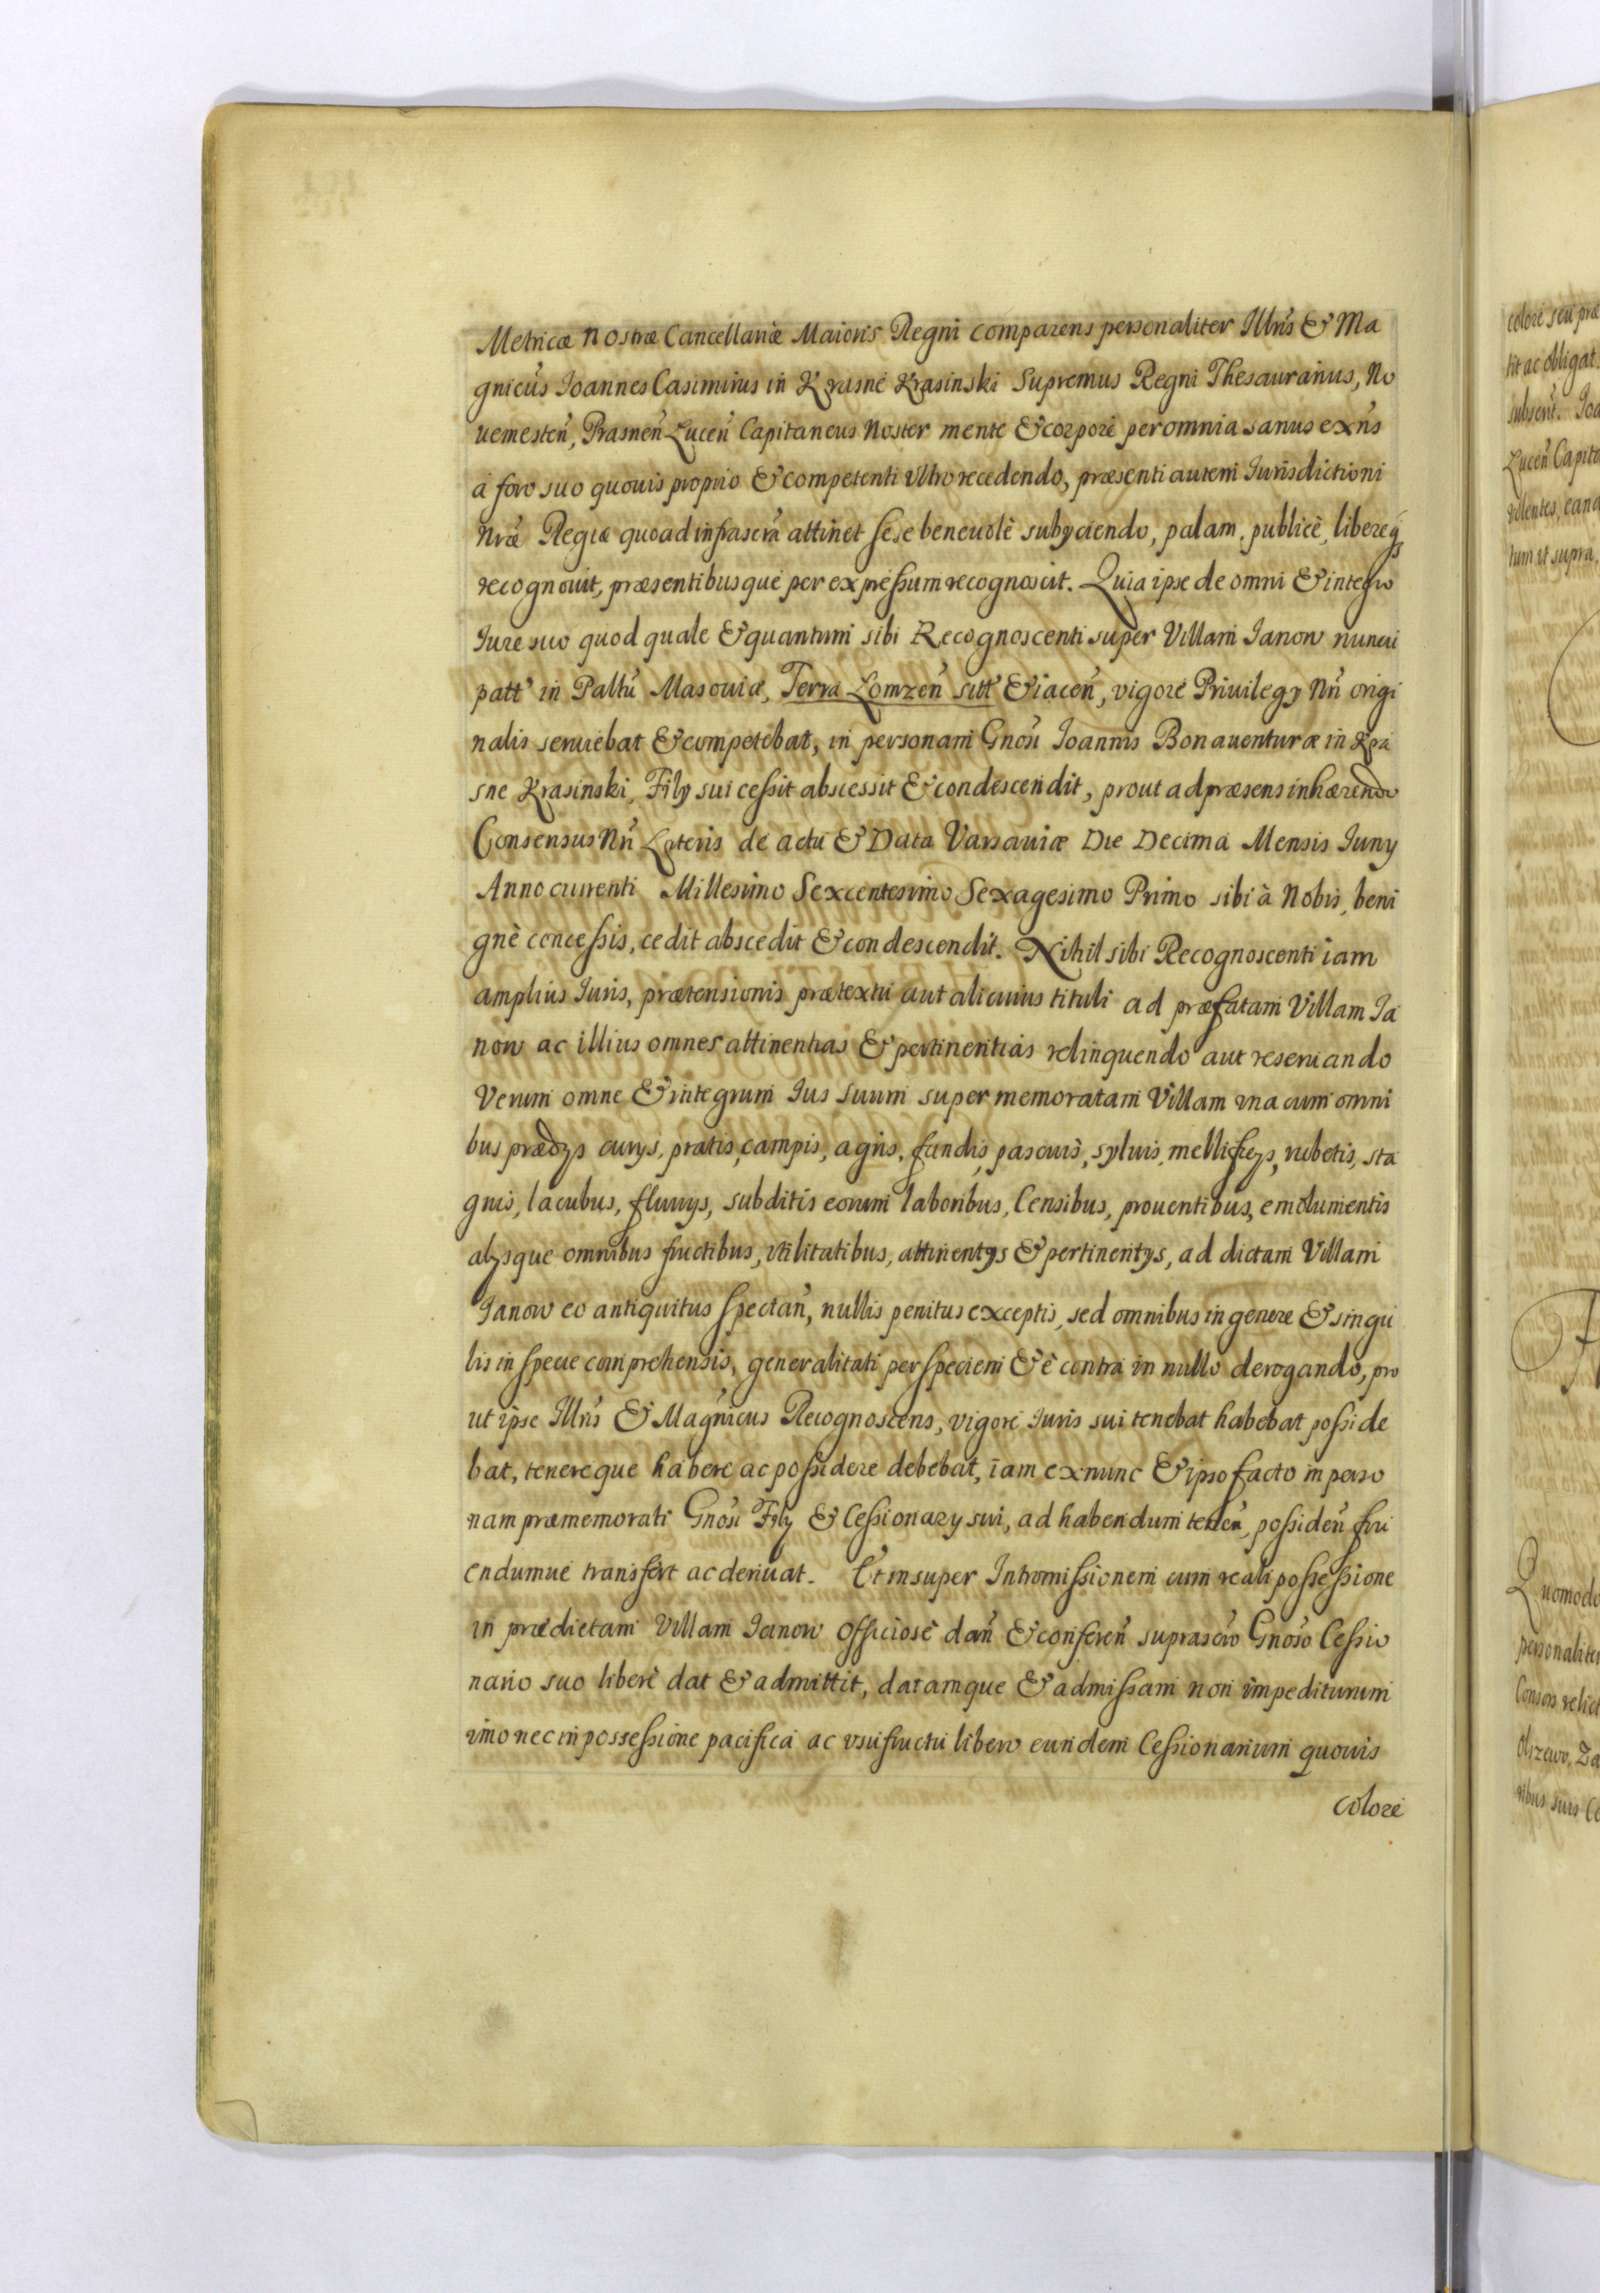 Metricæ nostræ Cancellariæ Maioris Regni comparens personaliter Illris & Ma
gnicus Ioannes Casimirus in Krasne Krasinski Supremus Regni Thesaurarius, No
uemesten, Prasnen Lucen Capitaneus Noster mente & corpore per omnia sanus exñs
à foro suo quouis proprio & competenti vltro recedendo, præsenti autem Iurisdictioni
Nræ Regiæ quoad infrascra attinet sese beneuolè subyciendo, palam, publicè, libereq3
recognouit, præsentibusque per expressum recognoscit. Quia ipse de omni & integro
Iure suo quod quale & quantum sibi Recognoscenti super Villam Ianow nuncu
patt in Paltu Masouiæ, Terra Lomzen sitt & iacen, vigore Priuilegy Nri origi
nalis seruiebat & competebat, in personam Gnosi Ioannis Bonauenturæ in Kra
sne Krasinski, Fily sui cessit abscessit & condescendit, prout ad præsens inhærendo
Consensus Nri Lateris de actu & Data Varsauiæ Die Decima Mensis Iuny
Anno currenti Millesimo Sexcentesimo Sexagesimo Primo sibi à Nobis, beni
gnè concessis, cedit abscedit & condescendit. Nihil sibi Recognoscenti iam
amplius Iuris, prætensionis prætextu aut alicuius tituli ad præfatam Villam Ia
now ac illius omnes attinentias & pertinentias relinquendo aut reseruando
Verum omne & integrum Ius suum super memoratam Villam vna cum omni
bus prædys curys, pratis, campis, agris, fundis, pascuis, syluis, mellificys, rubetis, sta
gnis, lacubus, fluuys, subditis eorum laboribus, Censibus, prouentibus, emolumentis
alysque omnibus fructibus, vtilitatibus, attinentys & pertinentys, ad dictam Villam
Ianow eo antiquitus spectan, nullis penitus exceptis, sed omnibus in genere & singu
lis in specie comprehensis, generalitati per speciem & è contra in nullo derogando, pro
ut ipse Illris & Magnicus Recognoscens, vigore Iuris sui tenebat habebat posside
bat, tenereque habere ac possidere debebat, iam ex nunc & ipso facto in perso
nam præmemorati Gnosi Fily & Cessionary sui, ad habendum tenen, possiden fru
endumue transfert ac deriuat. Et insuper Intromissionem cum reali possessione
in prædictam Villam Ianow officiosè dan & conferen suprascro Gnoso Cessio
nario suo liberè dat & admittit, datamque & admissam non impediturum
imo nec in possessione pacifica ac vsufructu libero eundem Cessionarium quouis
colore